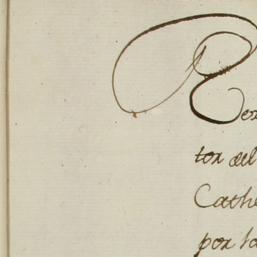 tor del
Cathe
por la